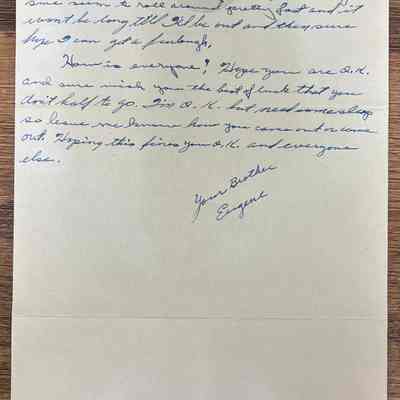 sure seem to roll around pretty fast and it
wont be long till I'll be out and then sure
hope I can get a furlough.
How is everyone? Hope you are O.K.
and sure wish you the best of luck that you
don't half to go. I'm O.K. but need some sleep
so leave me know how you came out or come
out. Hoping this fines you O.K. and everyone
else.
Your Brother
Eugene